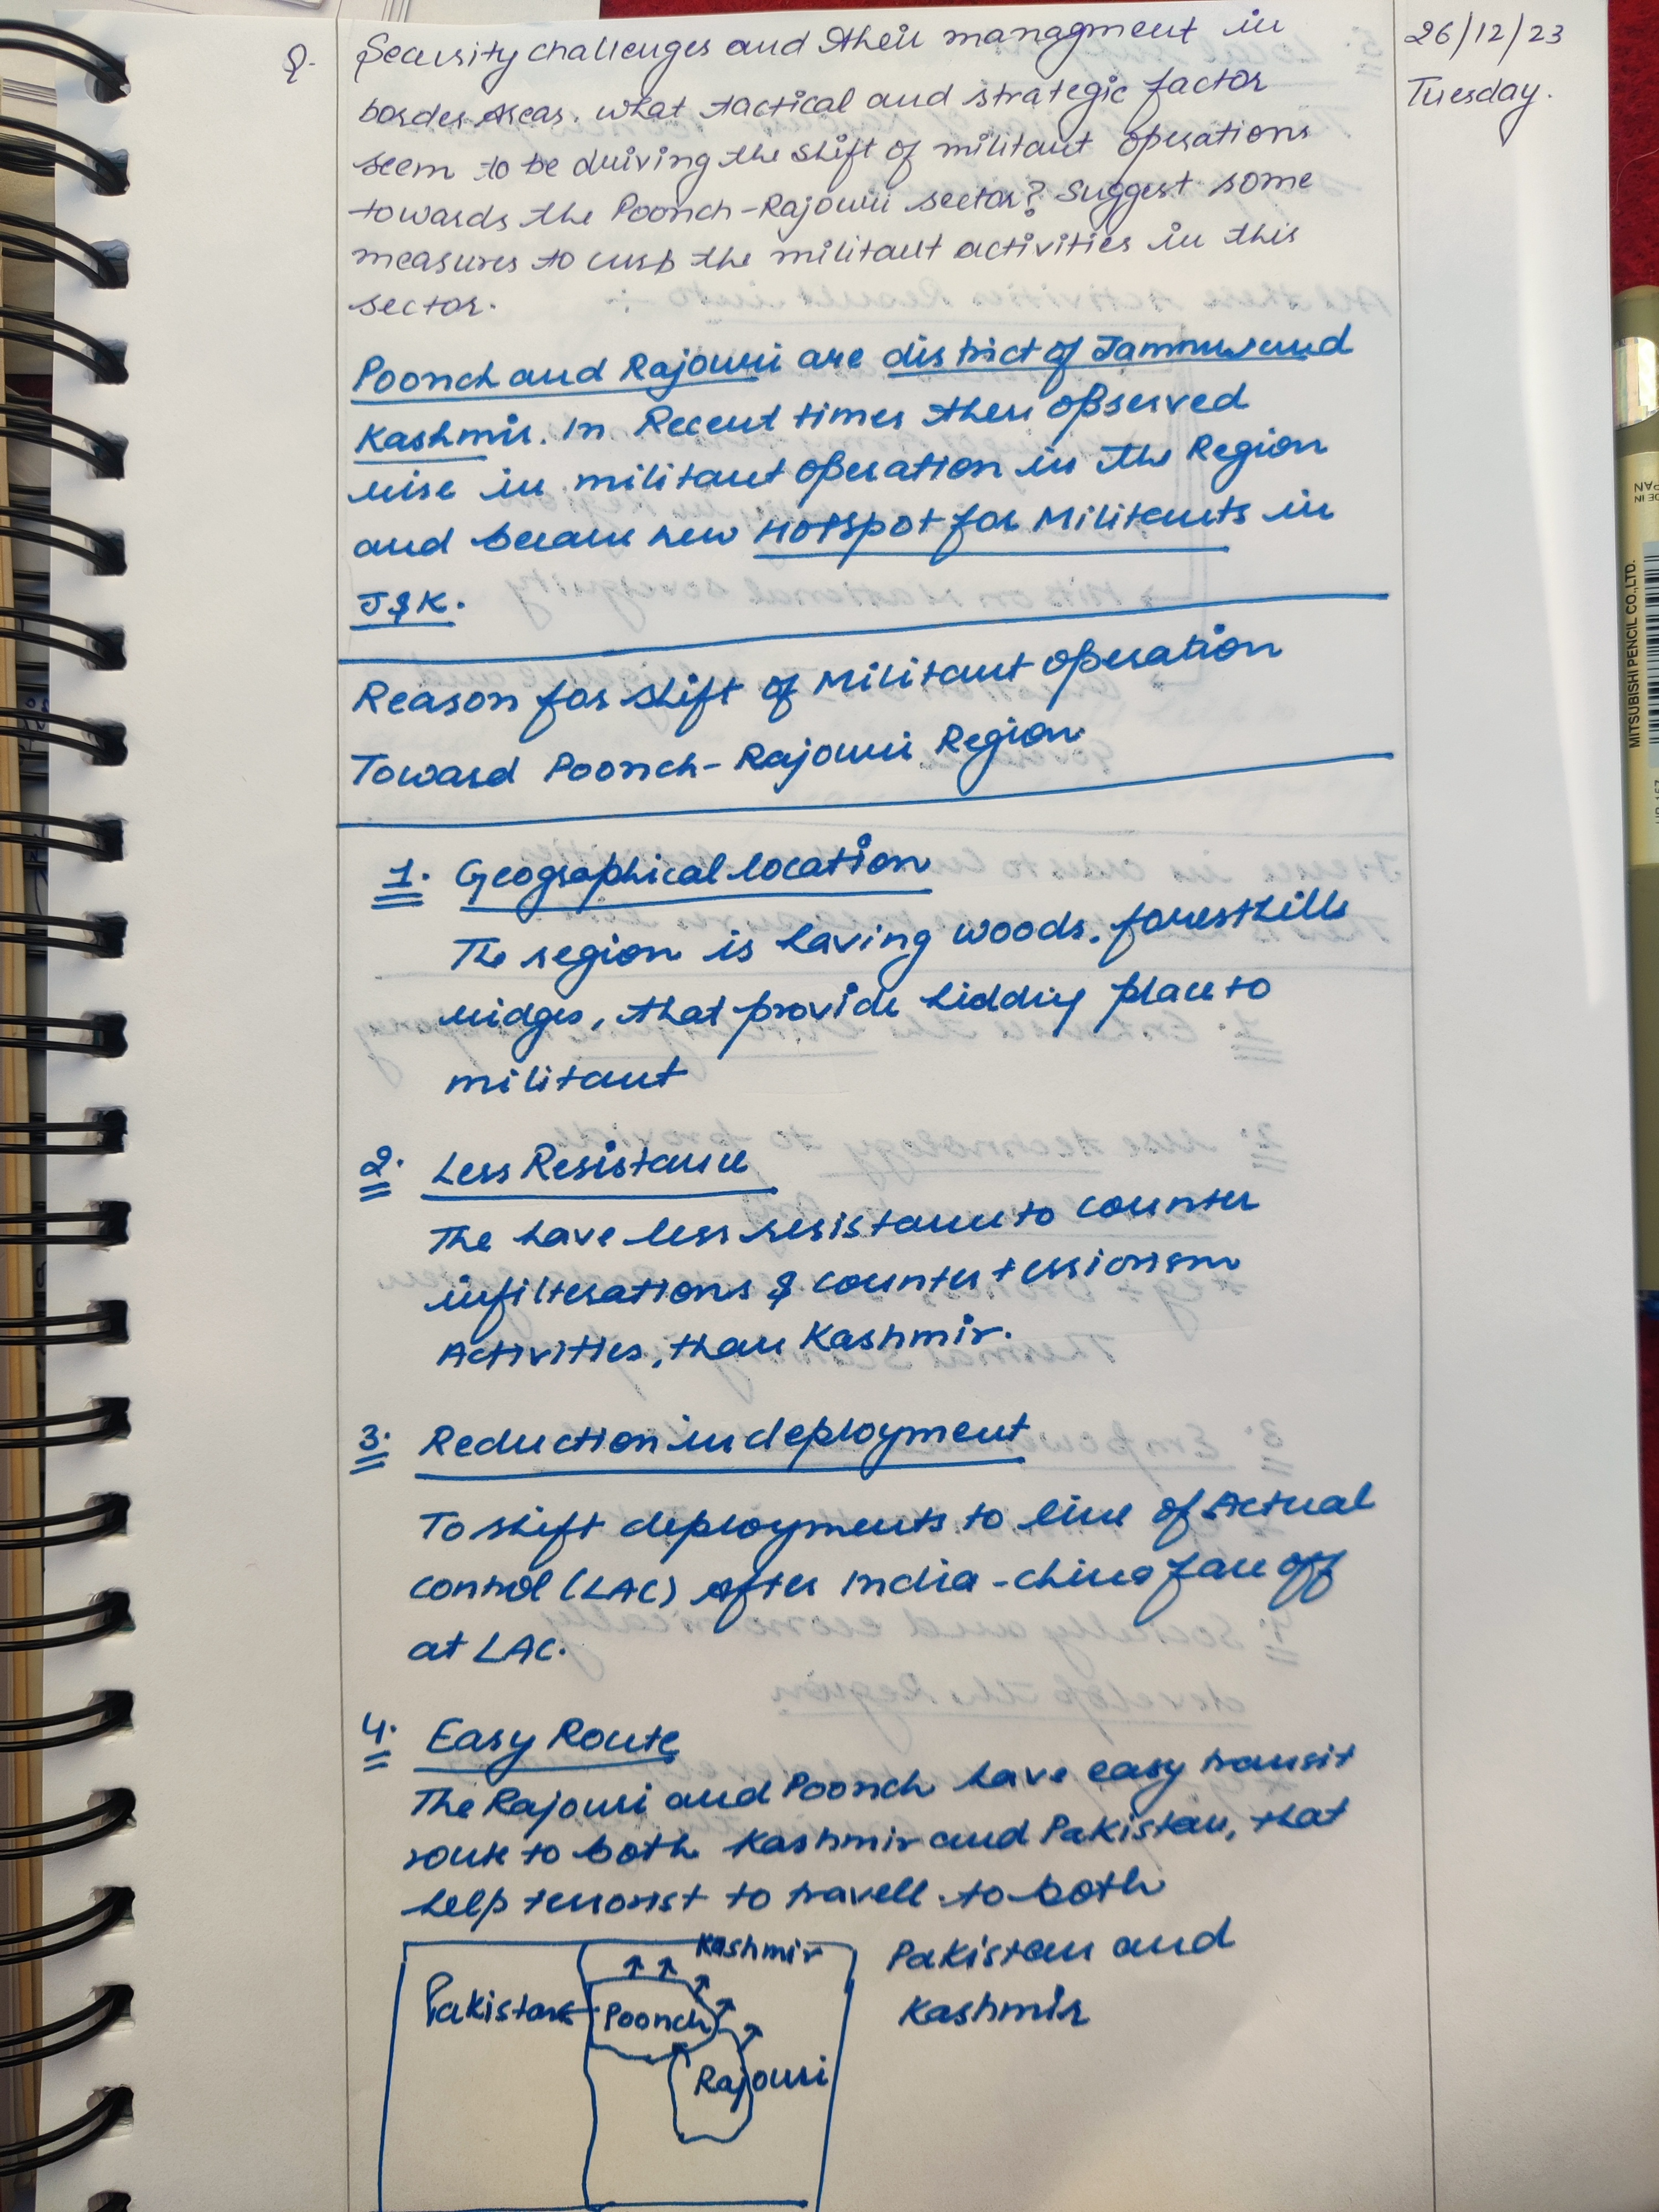 26/12/23
Tuesday.
Q. Security challenges and their managment in
border areas. what tactical and strategic factor
seem to be driving the shift of militant operations
towards the Poonch-Rajouri sector? Suggest some
measures to curb the militant activities in this
sector.
Poonch and Rajouri are district of Jammu and
Kashmir. In Recent times there observed
rise in militant operation in the Region
and became new HOTSpot for Militants in
J&K.
Reason for shift of Militant operation
Toward Poonch-Rajouri Region.
1. Geographical location
The region is having woods, forest hills
ridges, that provide hidding place to
militant
2. Less Resistance
The have less resistance to counter
infilterations & counter terriorism
Activities, than Kashmir.
3. Reduction in deployment
To shift deployments to line of Actual
control (LAC) after India-china face off
at LAC.
4. Easy Route
The Rajouri and Poonch have easy transit
route to both Kashmir and Pakistan, that
help terrorist to travell to both
Pakistan and
Kashmir
Kashmir
Pakistan
Poonch
Rajouri
MITSUBISHI PENCIL CO., LTD.